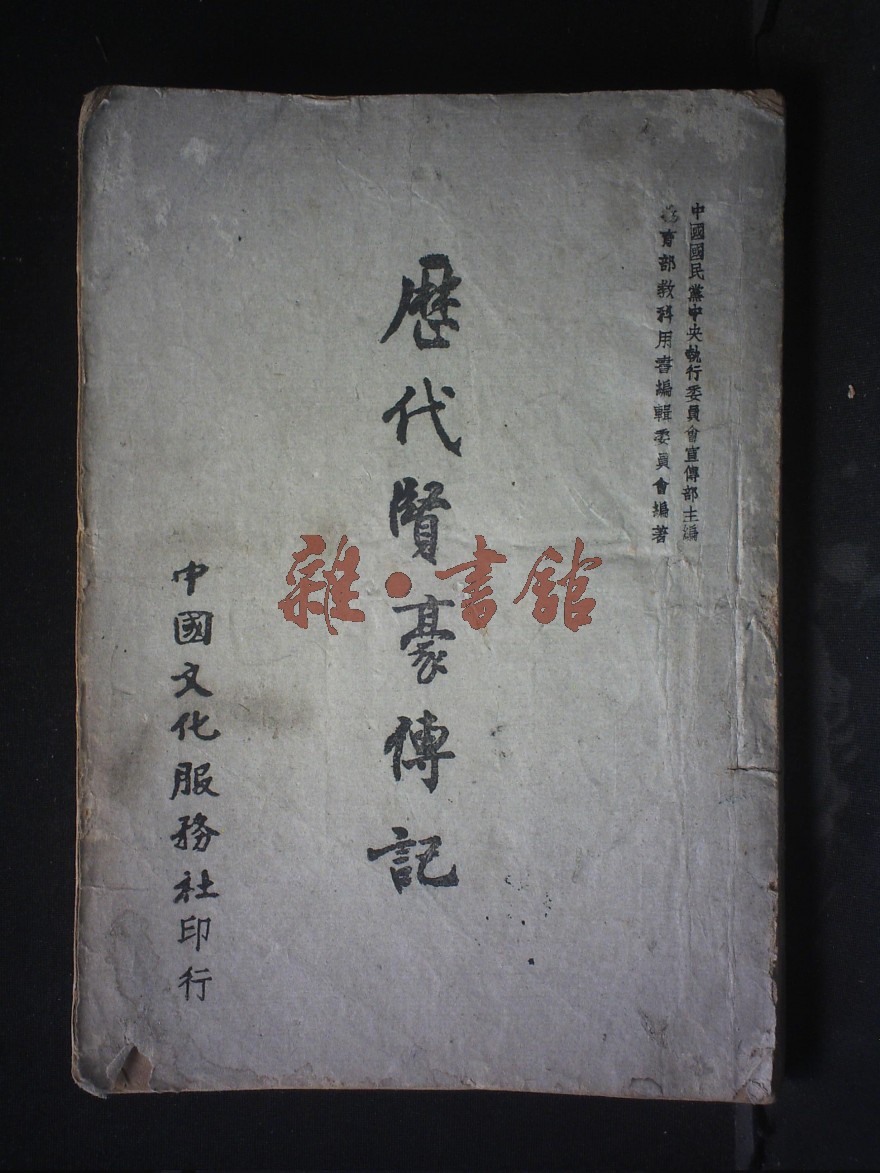 中國國民黨中央執行委員會宣傳部主編
教育部教科用書編輯委員會編著
歷代賢豪傳記
中國文化服務社印行
雜·書館